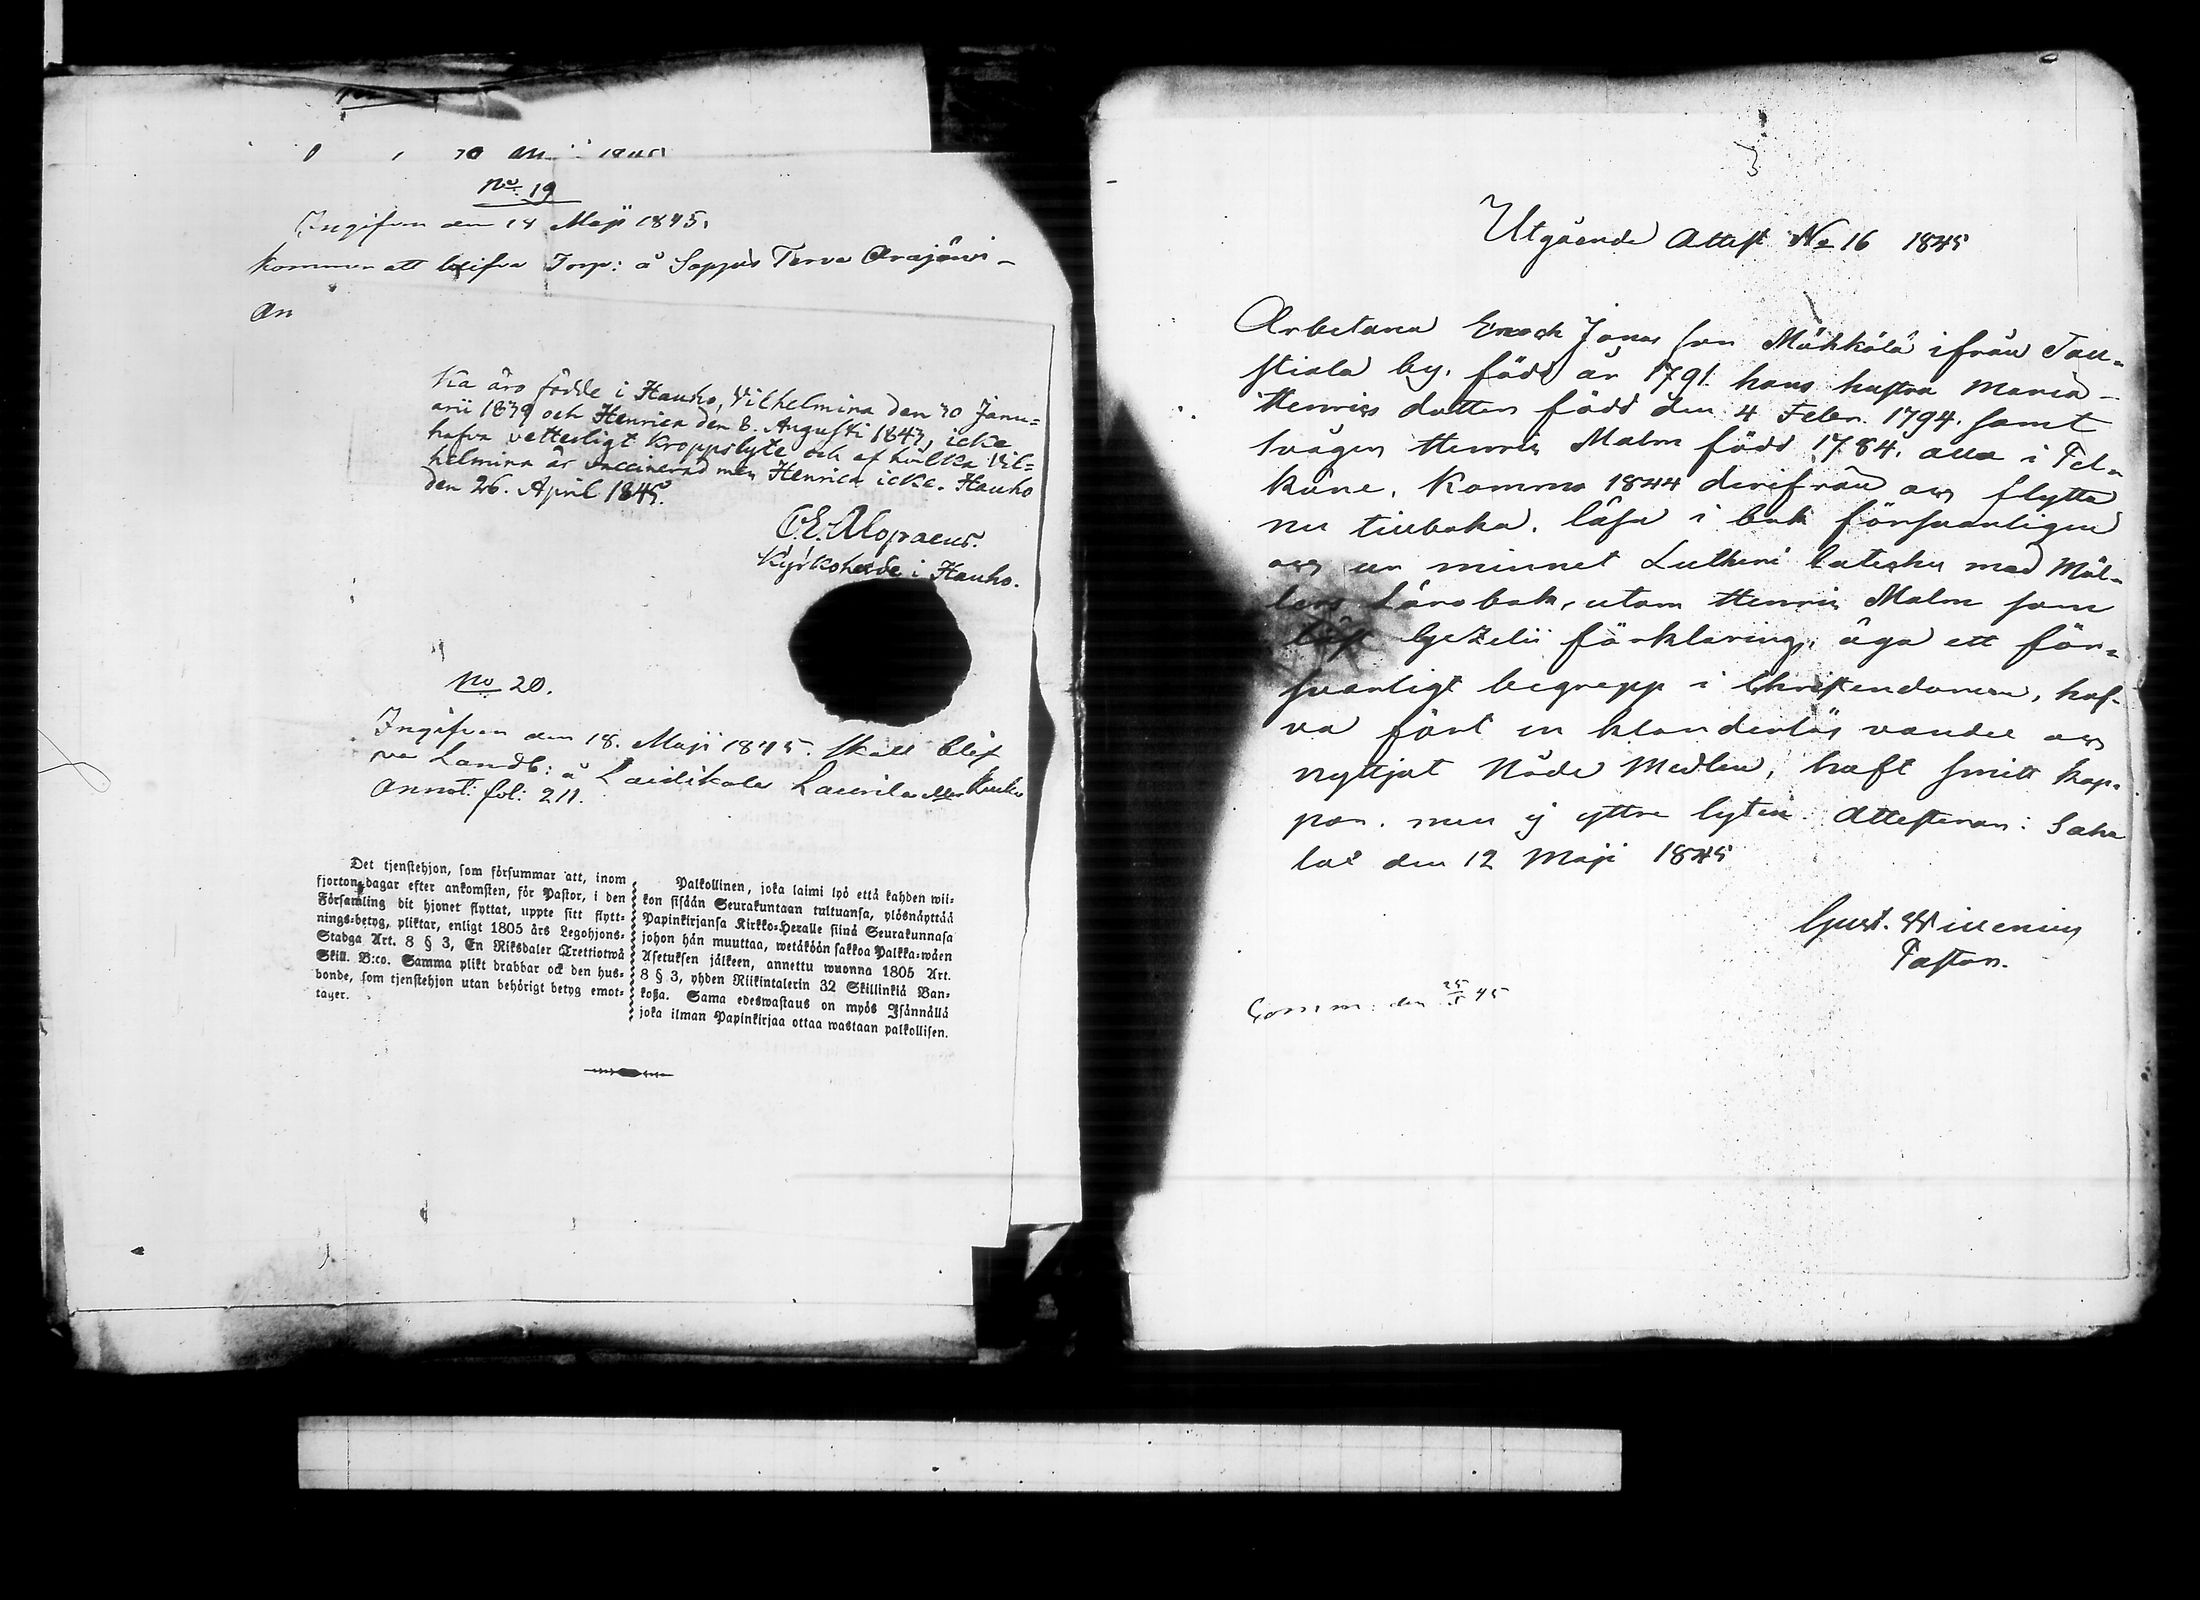 No. 19
Ingifven den 18 Maji 1845.
Kommer att blifva Torp: å Sappus Terva Arajärvi
An
ka äro födde i Hauho, Vilhelmina den 30 Janu=
arii 1839 och Henrica den 8. Augusti 1843, icke
hafva vetterligt Kroppslyte och af hvilka Vil=
helmina är vaccinerad men Henrica icke. Hauho
den 26. April 1845.
C.E. Alopraeus.
Kyrkoherde i Hauho.
No 20.
Ingifven den 18. Maji 1845. Skall blif
va Landb: å Laidikala Laurila
Annot: fol: 211.
Det tjenstehjon, som försummar att, inom
fjorton dagar efter ankomsten, för Pastor, i den
Församling dit hjonet flyttat, uppte sitt flytt-
nings-betyg, pliktar, enligt 1805 års Legohjons-
Stadga Art. 8 § 3, En Riksdaler Trettiotwå
Skill. B:co. Samma plikt drabbar ock den hus-
bonde, som tjenstehjon utan behörigt betyg emot-
tager.
Palkollinen, joka laimi lyö että kahden wii-
kon sisään Seurakuntaan tultuansa, ylösnäyttää
Papinkirjansa Kirkko-Heralle siinä Seurakunnasa
johon hän muuttaa, wetäköön sakkoa Palkka-wäen
Asetuksen jälkeen, annettu wuonna 1805 Art.
8 § 3, yhden Riikintalerin 32 Skillinkiä Ban-
kossa. Sama edeswastaus on myös Isännällä
joka ilman Papinkirjaa ottaa wastaan palkollisen.
Utgående Attest No 16 1845
Arbetaren Enoch Jonas son Mäkkölä ifrån Tau-
stiala by. född år 1791. hans hustru Maria
Henrics dotter född den 4 Febr. 1794. samt
svågern Henric Malm född 1784. alla i Pel-
käne. Komma 1844 derifrån och flytta
nu tillbaka. läsa i bok försvarligen
och ur minnet Lutheri Cateches med Möl-
lers Lärobok, utom Henric Malm som
läst Gezelii förklaring, äga ett för-
svarligt begrepp i Christendomen, haf-
va fört en klanderlös vandel och
nyttjat Nåde Medlen, haft smitt kop-
por. men ej yttre lyten. Attesterar: Saha
lax den 12 Maji 1845
Gust. Willenius
Pastor.
Comm: den 25/5 45